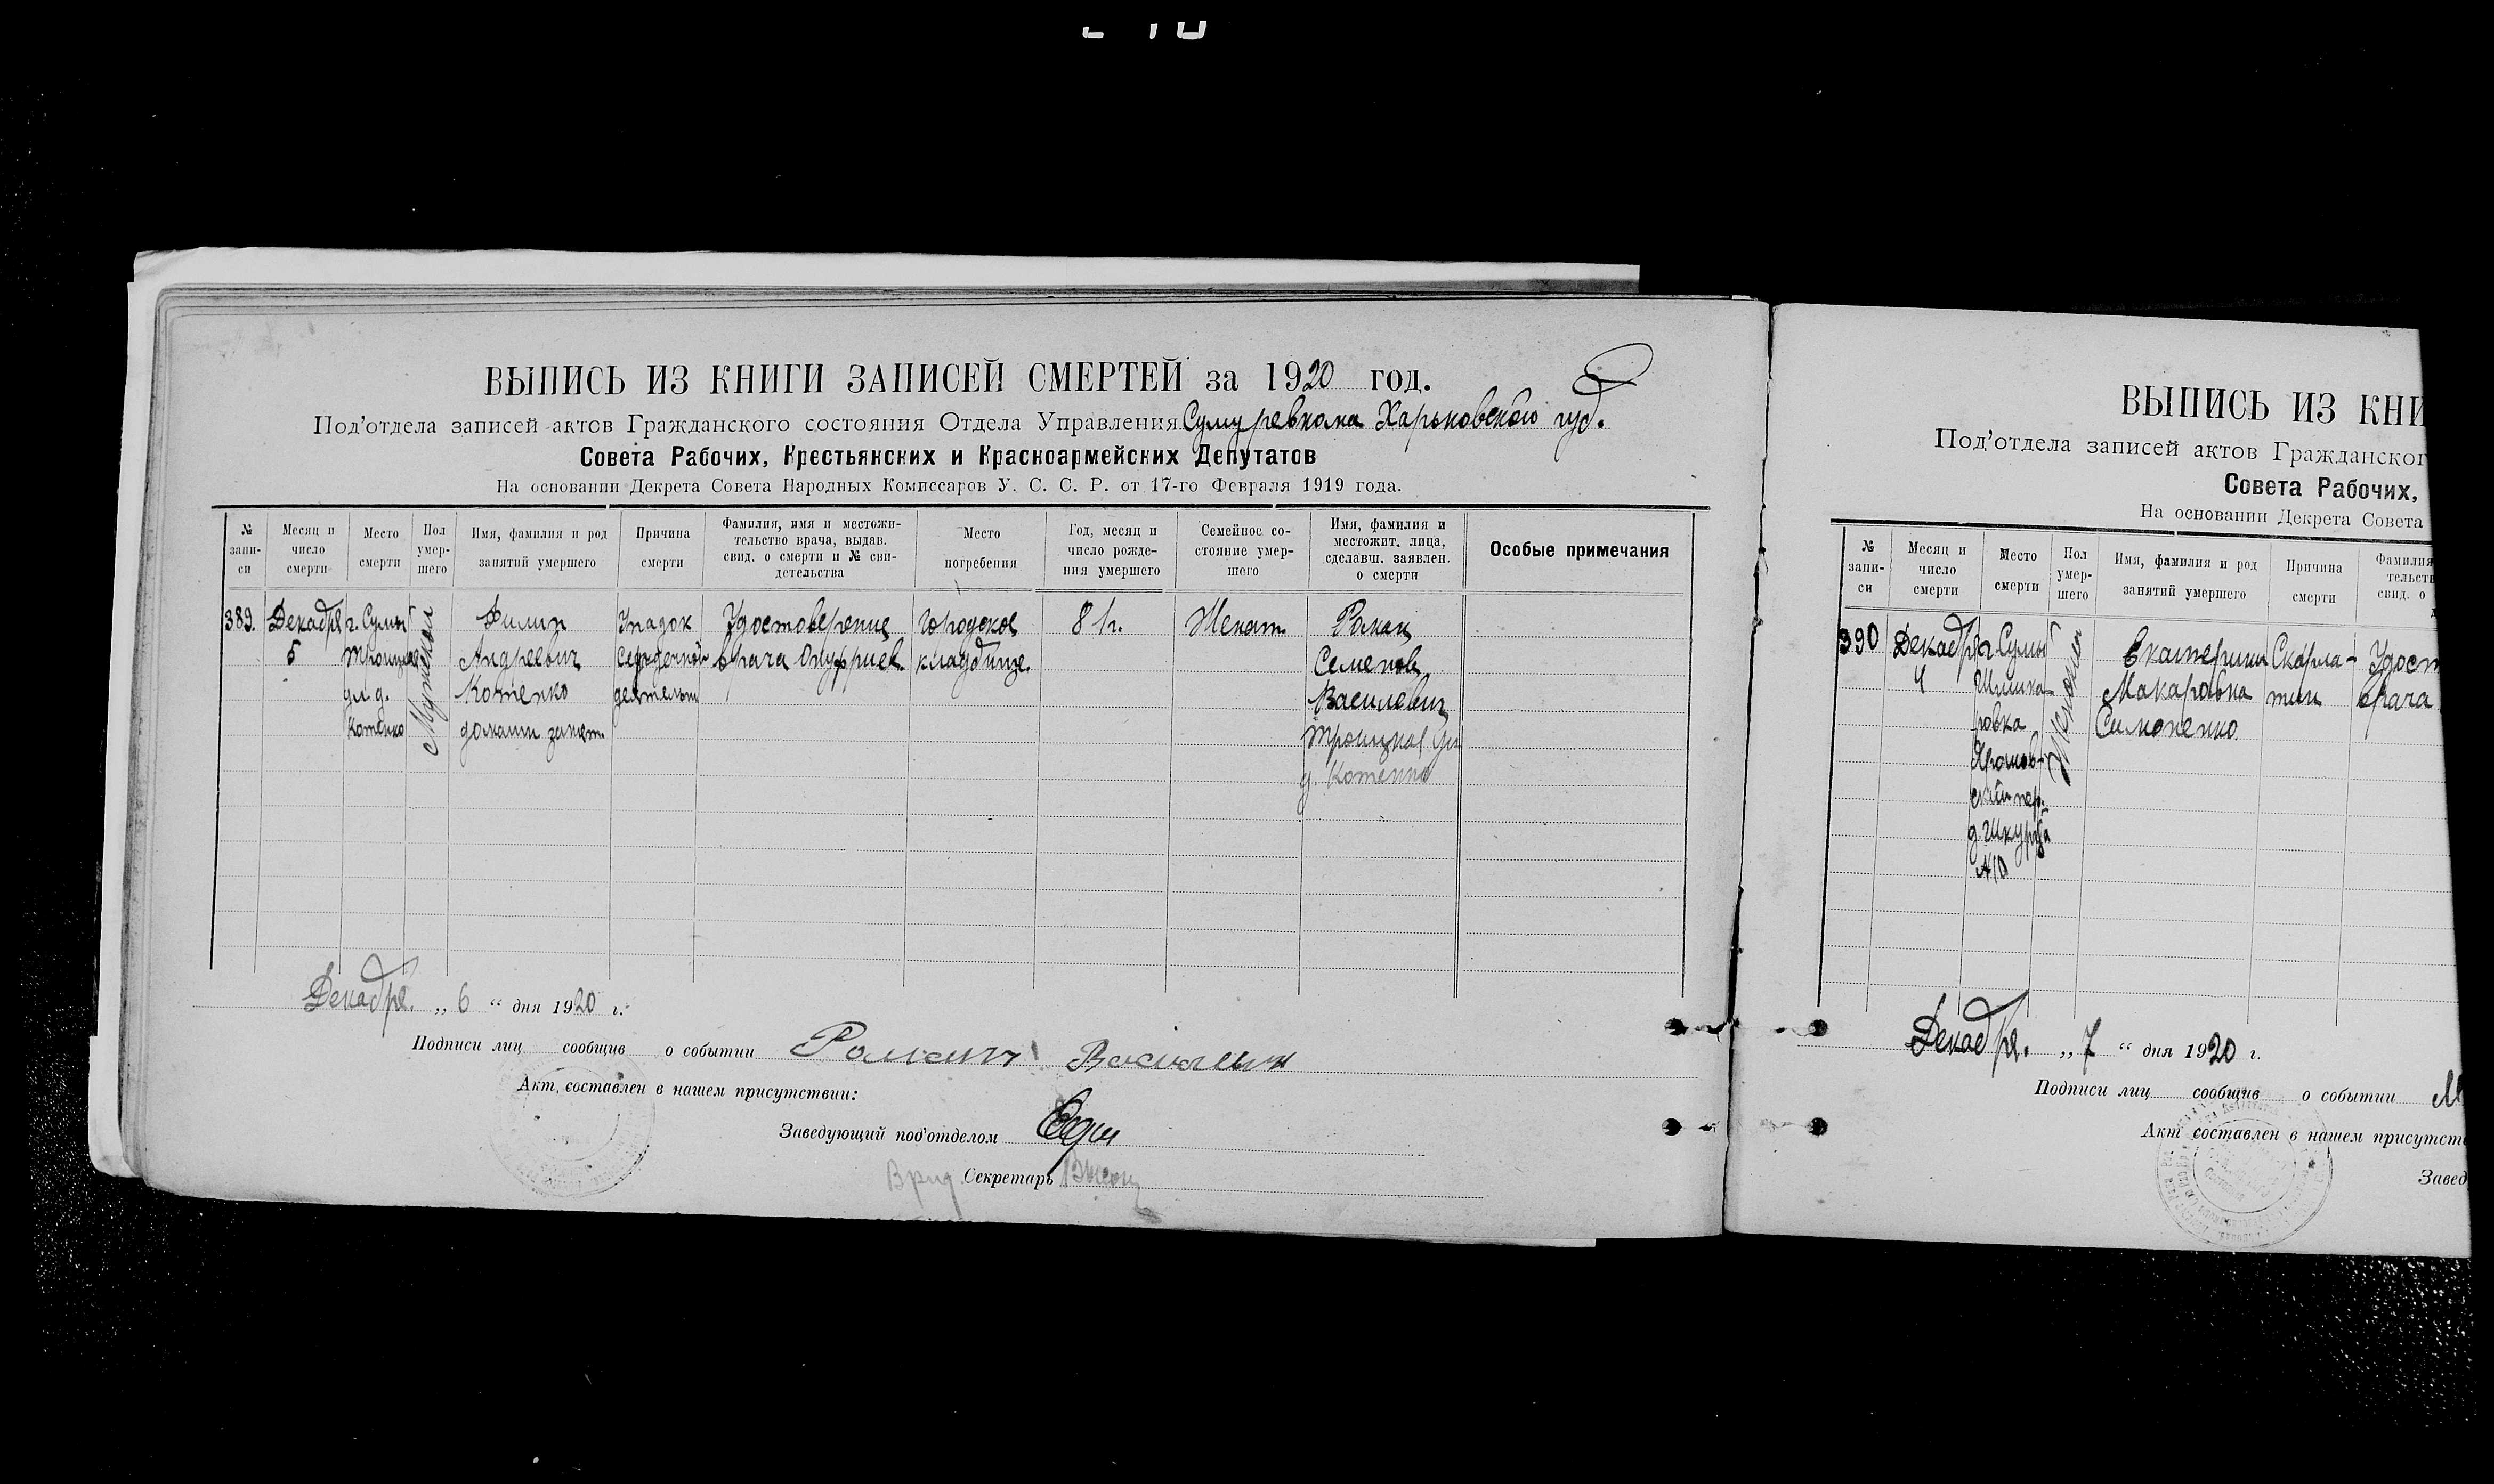 ВЫПИСЬ ИЗ КНИГИ ЗАПИСЕЙ СМЕРТЕЙ за 1920 год.
Под'отдела записей актов Гражданского состояния Отдела Управления Сумуревкома Харьковской губ.
Совета Рабочих, Крестьянских и Красноармейских Депутатов
На основании Декрета Совета Народных Комиссаров У. С. С. Р. от 17-го Февраля 1919 года.
№ запи-си
Месяц и число смерти
Место смерти
Пол умер-шего
Имя, фамилия и род занятий умершего
Причина смерти
Фамилия, имя и местожи-тельство врача, выдав. свид. о смерти и № сви-детельства
Место погребения
Год, месяц и число рожде-ния умершего
Семейное со-стояние умер-шего
Имя, фамилия и местожит. лица, сделавш. заявлен. о смерти
Особые примечания
389.
Декабря
5
г. Сумы
Троицкая
ул. д.
Котенко
Мужской
Филип
Андреевич
Котенко
домашн занят.
Упадок
сердечной
деятельн
Удостоверение
врача Онуфриев.
городское
кладбище.
81 г.
Женат.
Роман
Семенов
Василевич
Троицкая ул
д. Котенко
Декабря. „ 6 “ дня 1920 г.
Подписи лиц сообщив о событии Роман
Акт составлен в нашем присутствии:
Заведующий под'отделом
Врид Секретарь
ВЫПИСЬ ИЗ КНИ
Под'отдела записей актов Гражданског
Совета Рабочих,
На основании Декрета Совета
№ запи-си
Месяц и число смерти
Место смерти
Пол умер-шего
Имя, фамилия и род занятий умершего
Причина смерти
Фамилия
тельств
свид. о
390
Декабря
4
г. Сумы
ровка
пер.
№ 10
Женский
Екатерина
Макаровна
Симоненко
Скарла-
тин
Удост
врача
Декабря. „ 7 “ дня 1920 г.
Подписи лиц сообщив о событии
Акт составлен в нашем присутств
Завед